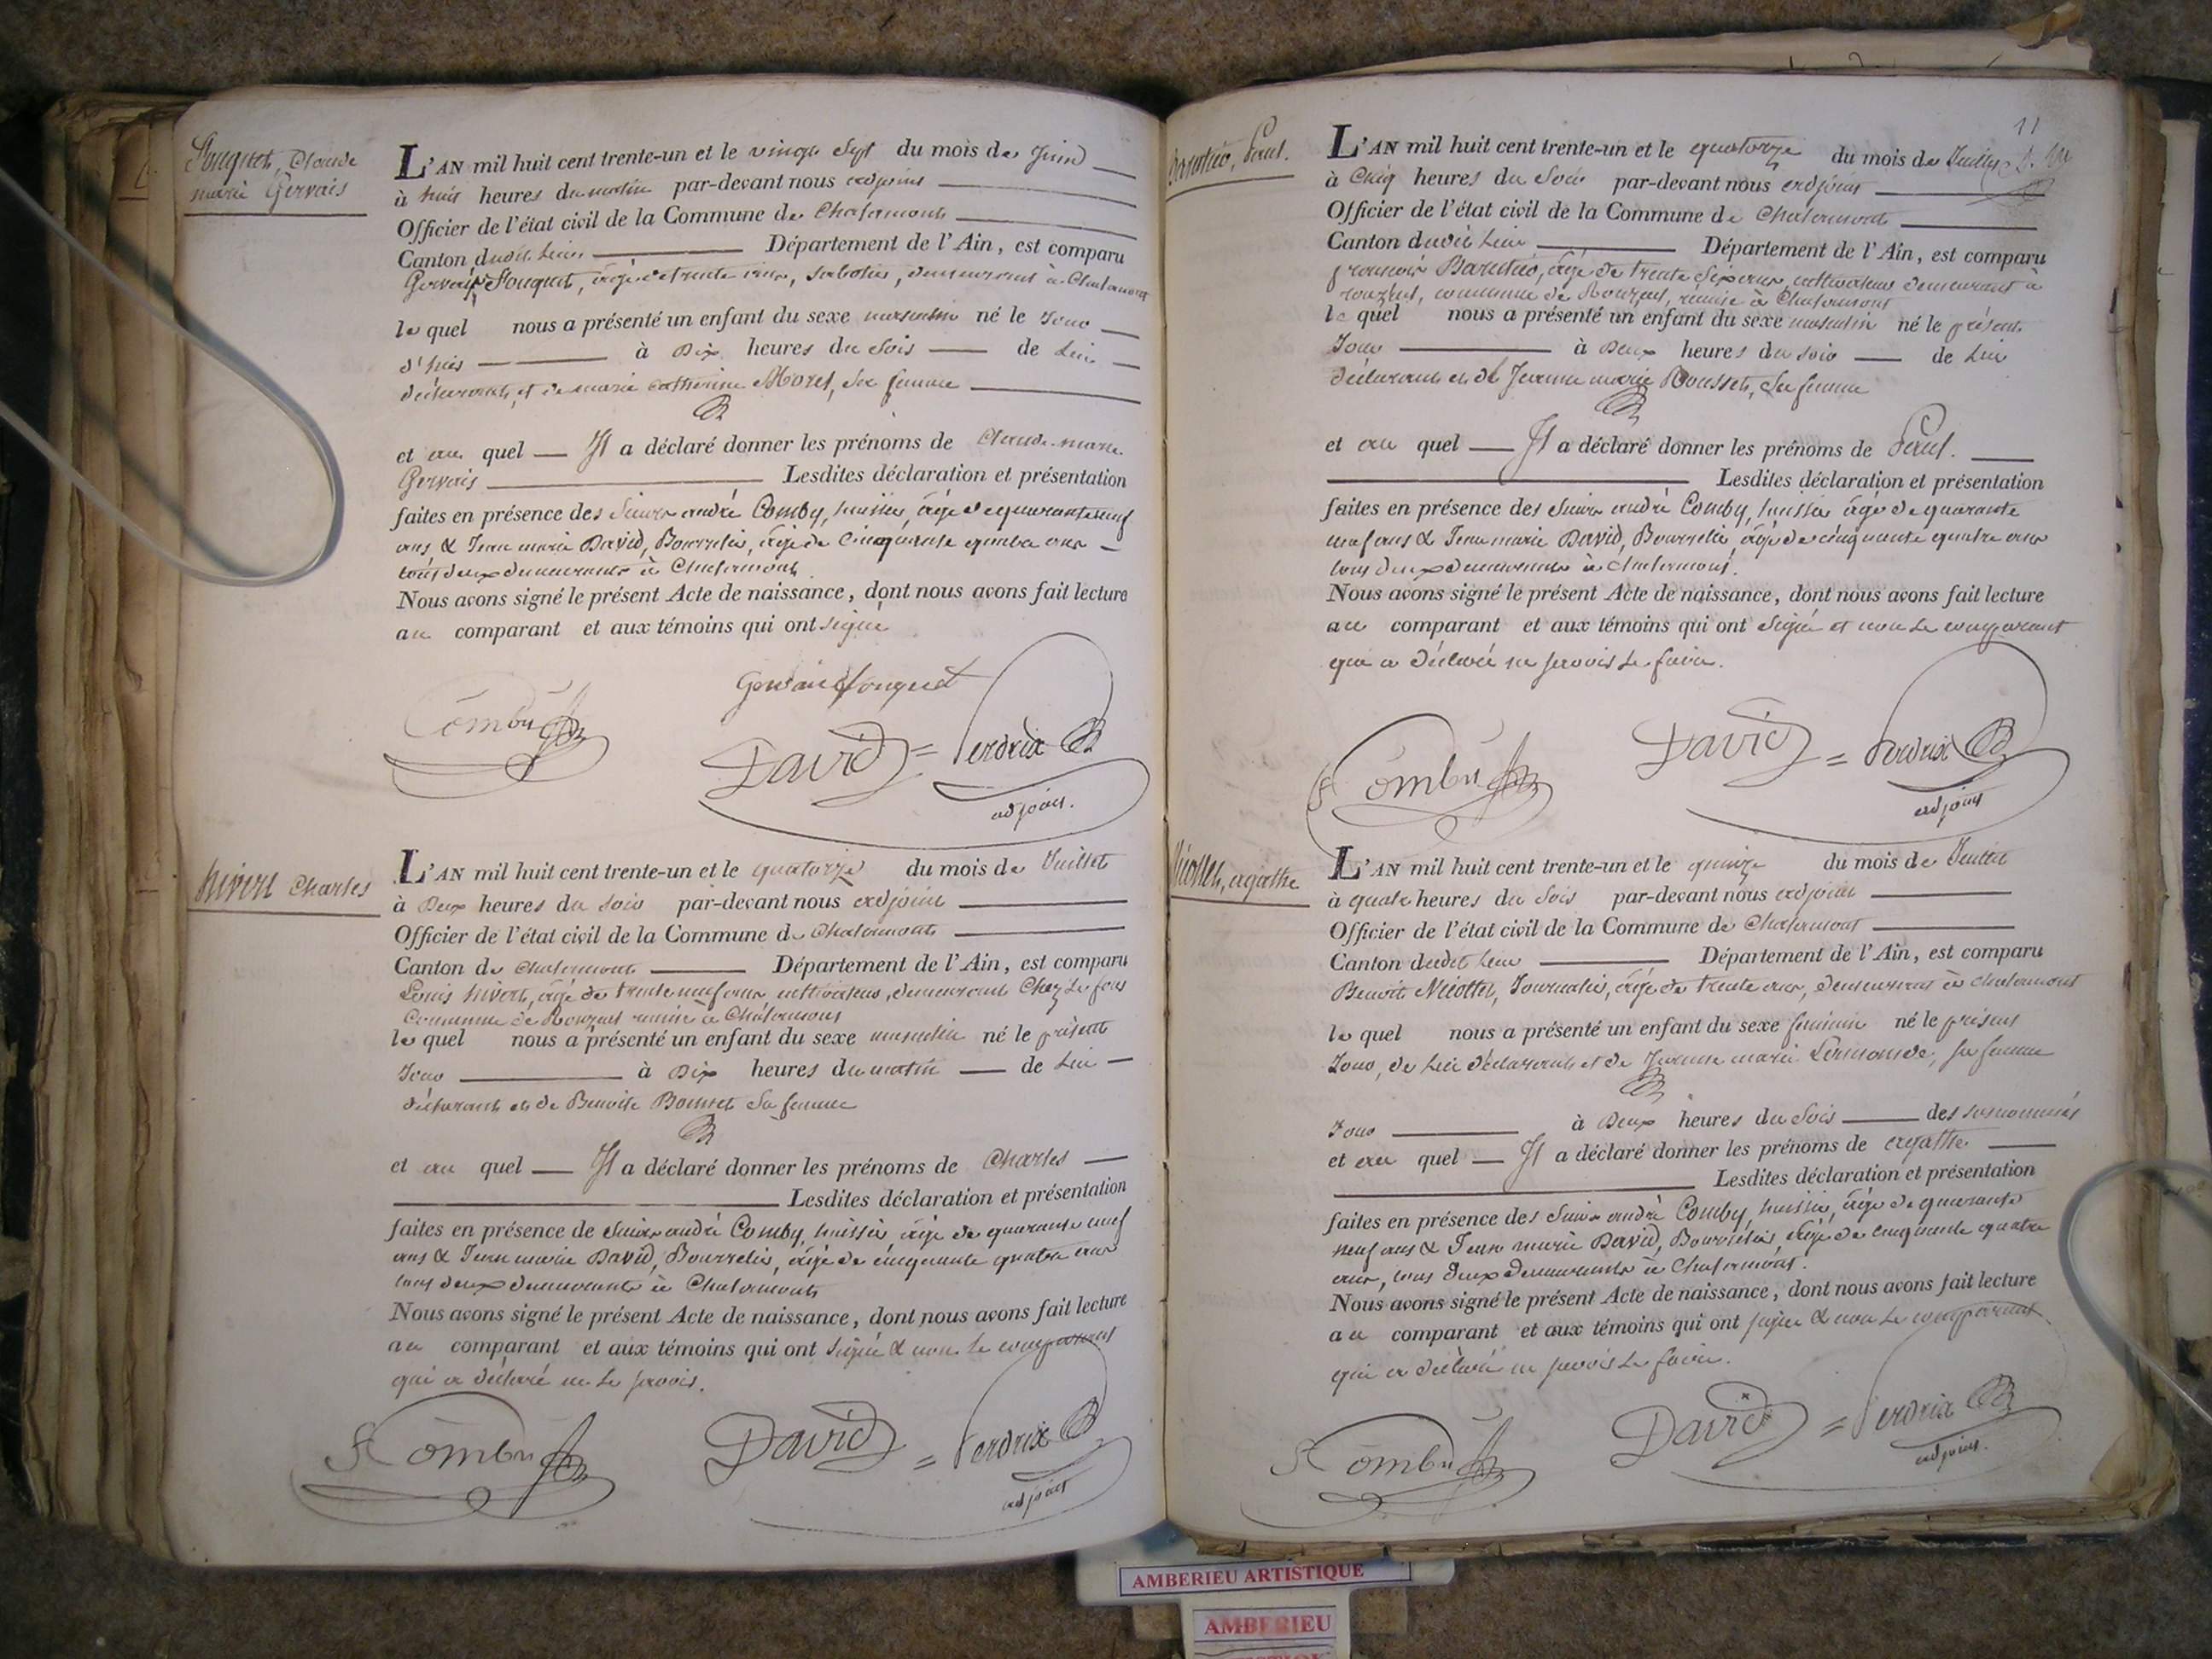 Fouquet, Claude
marie Gervais
L'AN mil huit cent trente-un et le vingt Sept du mois de Juin
à huit heures du matin par-devant nous adjoint
Officier de l'état civil de la Commune de Chalamont
Canton dudit lieu Département de l'Ain, est comparu
Gervais Fouquet, âgé de trente ans, sabotier, demeurant à Chalamont
le quel nous a présenté un enfant du sexe masculin né le Jour
d'hier à Dix heures du Soir de Lui
déclarant, et de marie catherine Morel, Sa femme
et au quel Il a déclaré donner les prénoms de Claude-marie
Gervais Lesdites déclaration et présentation
faites en présence des Sieurs andré Comby, huissier, âgé de quarante neuf
ans & Jean marie David, Bourrelier, âgé de Cinquante quatre ans
tous deux demeurants à Chalamont
Nous avons signé le présent Acte de naissance, dont nous avons fait lecture
au comparant et aux témoins qui ont signé
Gervais fouquet
Comby
David = Perdrix
adjoint.
hivert Charles
L'AN mil huit cent trente-un et le quatorze du mois de Juillet
à Deux heures du Soir par-devant nous adjoint
Officier de l'état civil de la Commune de Chalamont
Canton de Chalamont Département de l'Ain, est comparu
Louis hivert, âgé de trente neuf ans, cultivateur, demeurant Chez Le
Commune de Ronzuel réunie à Chalamont
le quel nous a présenté un enfant du sexe masculin né le présent
Jour à Dix heures du matin de Lui
déclarant et de Benoite Sa femme
et au quel Il a déclaré donner les prénoms de Charles
Lesdites déclaration et présentation
faites en présence de Sieurs andré Comby, huissier, âgé de quarante neuf
ans & Jean marie David, Bourrelier, âgé de cinquante quatre ans
tous deux demeurants à Chalamont
Nous avons signé le présent Acte de naissance, dont nous avons fait lecture
au comparant et aux témoins qui ont Signé & non le comparant
qui a déclaré ne le savoir.
Comby David = Perdrix
adjoint
11
Paul.
L'AN mil huit cent trente-un et le quatorze du mois de Juillet
à Cinq heures du Soir par-devant nous adjoint
Officier de l'état civil de la Commune de Chalamont
Canton dudit Lieu Département de l'Ain, est comparu
françois âgé de trente Six ans, cultivateur demeurant à
ronzuel, commune de Ronzuel, réunie à Chalamont
le quel nous a présenté un enfant du sexe masculin né le présent
Jour à Deux heures du Soir de Lui
déclarant et de Jeanne marie Rousset, Sa femme
et au quel Il a déclaré donner les prénoms de Paul.
Lesdites déclaration et présentation
faites en présence des Sieurs andré Comby, huissier âgé de quarante
neuf ans & Jean marie David, Bourrelier âgé de cinquante quatre ans
tous deux demeurants à Chalamont.
Nous avons signé le présent Acte de naissance, dont nous avons fait lecture
au comparant et aux témoins qui ont Signé et non Le comparant
qui a déclaré ne savoir Le faire.
Comby David = Perdrix
adjoint
Nicollet, agathe
L'AN mil huit cent trente-un et le quinze du mois de Juillet
à quatre heures du Soir par-devant nous adjoint
Officier de l'état civil de la Commune de Chalamont
Canton dudit lieu Département de l'Ain, est comparu
Benoit Nicollet, Journalier, âgé de trente ans, demeurant à Chalamont
le quel nous a présenté un enfant du sexe feminin né le présent
Jour, de Lui déclarant et de Jeanne marie sa femme
Jour à Deux heures du Soir des susnommés
et au quel Il a déclaré donner les prénoms de agathe
Lesdites déclaration et présentation
faites en présence des Sieurs andré Comby, huissier, âgé de quarante
neuf ans & Jean marie David, Bourrelier, âgé de cinquante quatre
ans, tous deux demeurants à Chalamont.
Nous avons signé le présent Acte de naissance, dont nous avons fait lecture
au comparant et aux témoins qui ont signé & non Le comparant
qui a déclaré ne savoir Le faire.
Comby David = Perdrix
adjoint.
AMBERIEU ARTISTIQUE
AMBERIEU